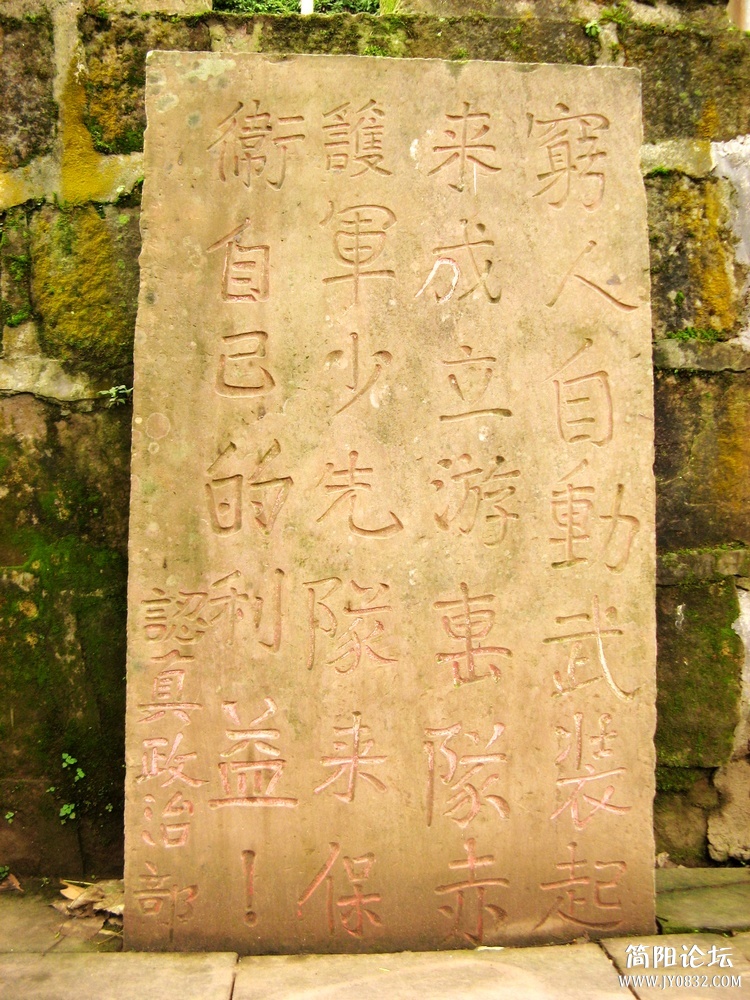 窮人自動武装起
来成立游击隊赤
護軍少先隊来保
衛自己的利益！
認真政治部
简阳论坛
WWW.JY0832.COM